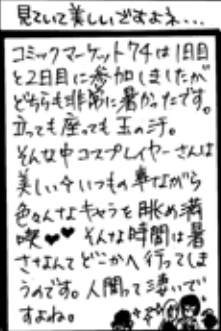 見ていて美しいですよネ...
コミックマーケット74は1日目
と2日目に参加しましたが
どちらも非常に暑かったです。
立っても座っても玉の汗。
そんな中コスプレイヤーさんは
美しい今いつもの事ながら
色々んなキャラを眺め満
喫♥♥ そんな時間は暑
さなんてどこかへ行ってしま
うのです。人間って凄いで
すよね。